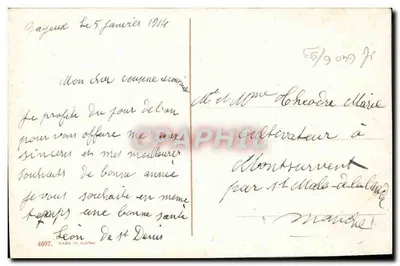 Bayeux Le 5 Janvier 1914
Mon cher cousine
Je profite du jour de l'an
pour vous offrire me
sinceres et mes meilleurs
souhaits de bonne année
je vous souhaite en même
temps une bonne santé
Léon de St Denis
4697.
Mr et Mme Théodre Marie
Cultivateur à
Montsurvent
par St Malo de la Lande
Manche
CPARAMA